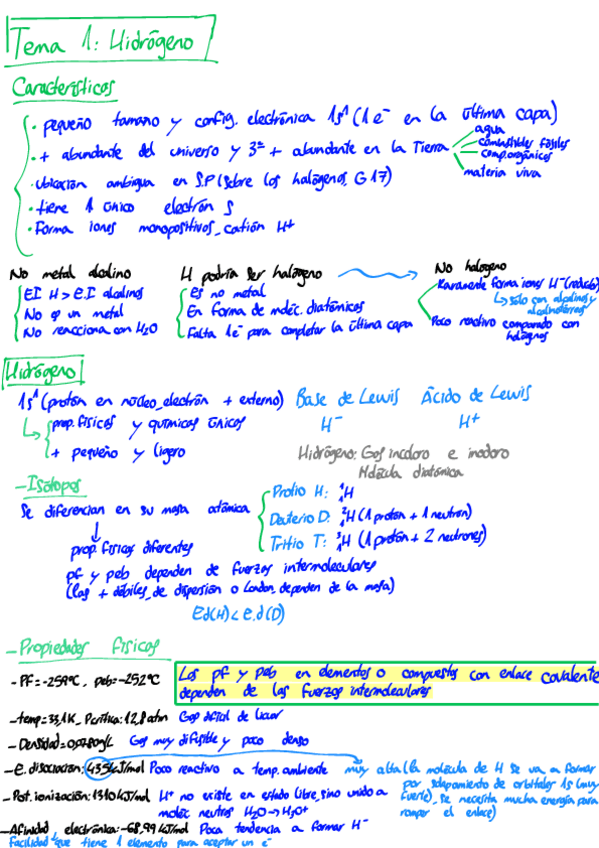 Tema 1: Hidrógeno
Características
· pequeño tamaño y config. electrónica 1s¹ (1 e⁻ en la última capa)
· + abundante del universo y 3ª + abundante en la Tierra
agua
combustibles fósiles
comp. orgánicos
materia viva
· Ubicación ambigua en S.P (sobre los halógenos, G17)
· tiene 1 único electrón s
· Forma iones monopositivos, catión H⁺
No metal alcalino
EI H > E.I alcalinos
No es un metal
No reacciona con H₂O
H podría ser halógeno
Es no metal
En forma de moléc. diatómicas
Falta 1e⁻ para completar la última capa
No halogeno
Raramente forma iones H⁻ (reducido)
↳ sólo con alcalinos y
alcalinotérreos
Poco reactivo comparado con
halógenos
Hidrógeno
1s¹ (protón en núcleo, electrón + externo)
↳ prop. físicas y químicas únicas
+ pequeño y ligero
Base de Lewis
H⁻
Ácido de Lewis
H⁺
Hidrógeno: Gas incoloro e inodoro
Molécula diatómica
- Isótopos
Se diferencian en su masa atómica
↓
prop. físicas diferentes
Protio H: ¹H
Deuterio D: ²H (1 protón + 1 neutrón)
Tritio T: ³H (1 protón + 2 neutrones)
pf y peb dependen de fuerzas intermoleculares
(las + débiles, de dispersión o London, dependen de la masa)
E.d(H) < E.d(D)
- Propiedades físicas
- PF = -259ºC, peb = -252ºC
Los pf y peb en elementos o compuestos con enlace covalente
dependen de las fuerzas intermoleculares
- temp = 33,1K, Pcrítica: 12,8 atm Gas difícil de licuar
- Densidad = g/L Gas muy difusible y poco denso
- E. disociación: kJ/mol Poco reactivo a temp. ambiente
muy alta (la molécula de H se va a formar
por solapamiento de orbitales 1s (muy
fuerte), se necesita mucha energía para
romper el enlace)
- Pot. ionización: 1310 kJ/mol H⁺ no existe en estado libre, sino unido a
moléc neutras H₂O → H₃O⁺
- Afinidad electrónica: -68,99 kJ/mol Poca tendencia a formar H⁻
facilidad que tiene 1 elemento para aceptar un e⁻